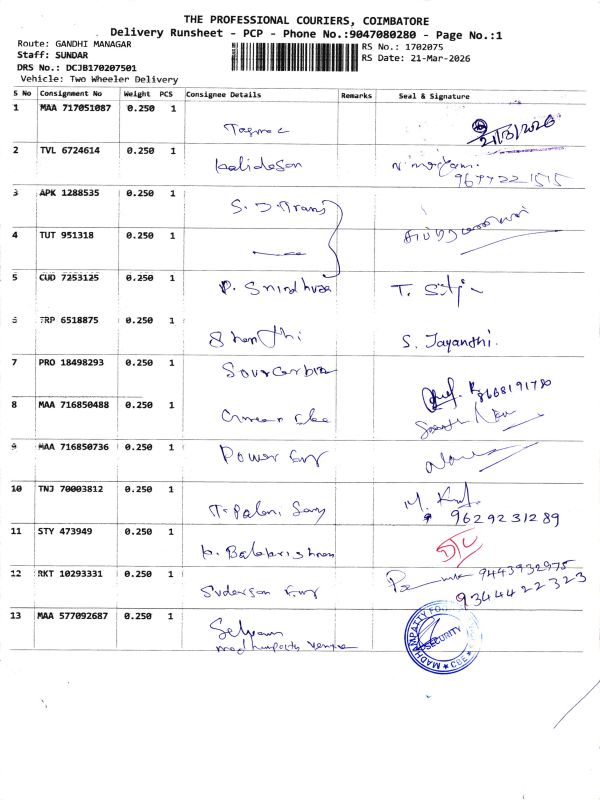 THE PROFESSIONAL COURIERS, COIMBATORE
Delivery Runsheet - PCP - Phone No.:9047080280 - Page No.:1
Route: GANDHI MANAGAR RS No.: 1702075
Staff: SUNDAR RS Date: 21-Mar-2026
DRS No.: DCJB170207501
Vehicle: Two Wheeler Delivery
S No Consignment No Weight PCS Consignee Details Remarks Seal & Signature
1 MAA 717051087 0.250 1
21/3/2026
2 TVL 6724614 0.250 1
Kalidasan
3 APK 1288535 0.250 1
S. J. Trans
4 TUT 951318 0.250 1
5 CUD 7253125 0.250 1
P.
6 TRP 6518875 0.250 1
Shanthi S. Jayanthi.
7 PRO 18498293 0.250 1
8668191780
8 MAA 716850488 0.250 1
9 MAA 716850736 0.250 1
Power Eng
10 TNJ 70003812 0.250 1
9629231289
11 STY 473949 0.250 1
Balakrishnan D/L
12 RKT 10293331 0.250 1
9443932975
Sudersan Eng 9344422323
13 MAA 577092687 0.250 1
Selvam
madhampatty
MADHAMPATTY
SECURITY
CBE